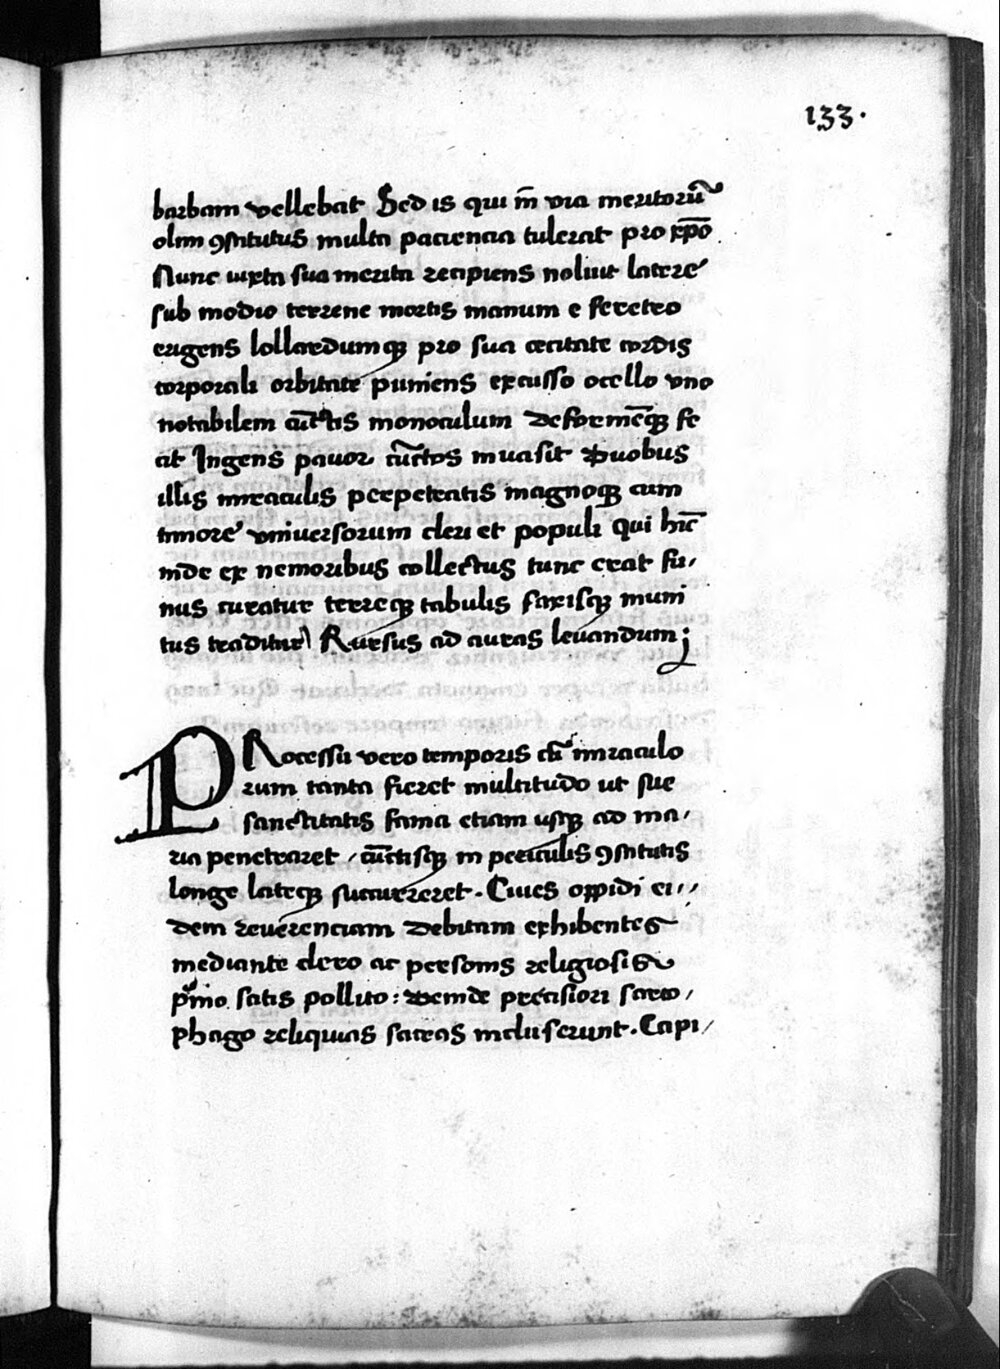 133.
barbam vellebat Sed is qui in̄ via meritorū
olim ꝯstitutus multa paciencia tulerat pro xp̄o
Nunc iuxta sua merita recipiens noluit latere
sub modio terrene mortis manum e feretro
erigens lollardumqꝫ pro sua cecitate cordis
corporali orbitate puniens excusso ocello vno
notabilem cūctis monoculum deformēqꝫ fe
cit Ingens pauor cūctos inuasit Duobus
illis miraculis perpetratis magnoqꝫ cum
timore vniuersorum cleri et populi qui hīc
inde ex nemoribus collectus tunc erat fu,
nus curatur terreqꝫ tabulis saxisqꝫ muni
tus traditur Rursus ad auras leuandum;
PRocessu vero temporis cū miraculo
rum tanta fieret multitudo ut sue
sanctitatis fama etiam usqꝫ ad ma,
ria penetraret, cūctisqꝫ in periculis ꝯstitutis
longe lateqꝫ succurreret. Ciues oppidi ei,,
dem reuerenciam debitam exhibentes
mediante clero ac personis religiosis
pͥmo satis pollito: Deinde preciosiori sarco,
phago reliquias sacras incluserunt. Capi,